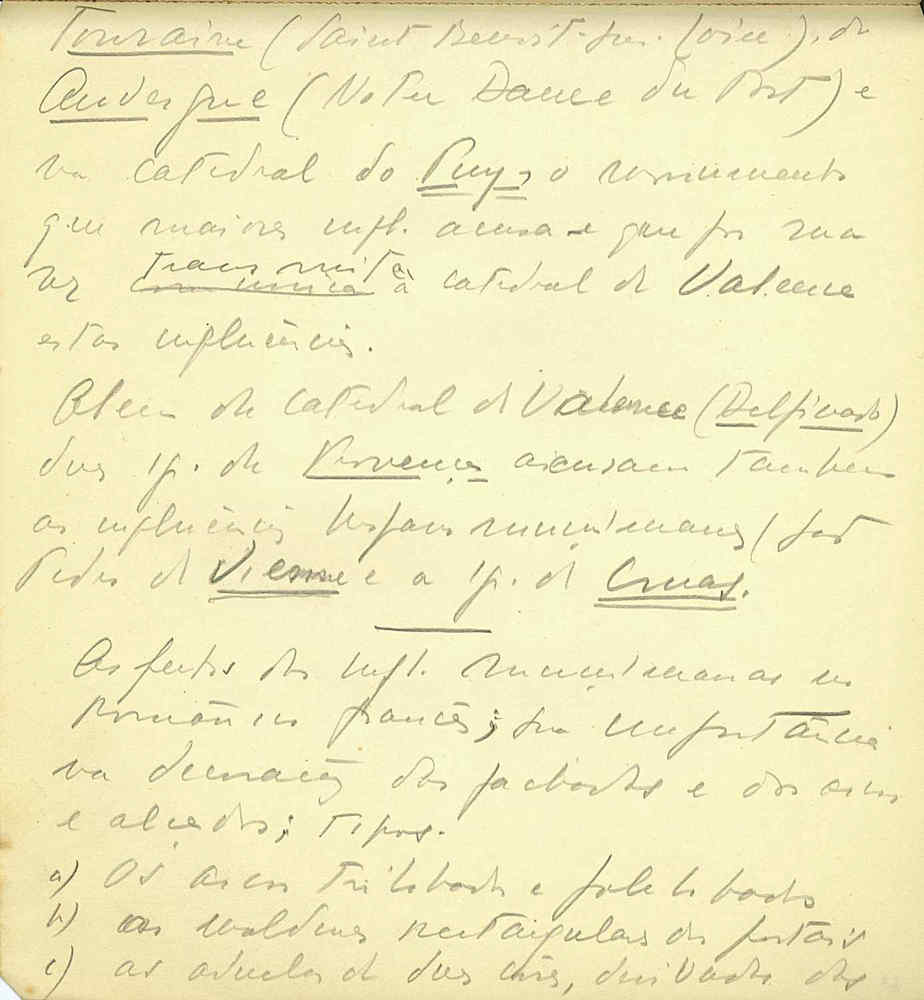 Touraine (Saint Benoît-sur-Loire), da
Auvergne (Notre Dame du Port) e
na catedral do Puy, o monumento
que maiores infl. acusa e que por sua
vez transmite à catedral de Valence
estas influências.
Alem da catedral de Valence (Delfinado)
duas ig. da Provença acusam tambem
as influências hispano muçulmanas (São
Pedro de Vienne e a ig. de Cruas.
Aspectos das infl. muçulmanas no
Românico francês; sua importância
na decoração das fachadas e dos arcos
e alçados; tipos.
a) Os arcos trilobados e polilobados
b) as molduras rectangulares dos portais
c) as aduelas de duas côres, derivadas das